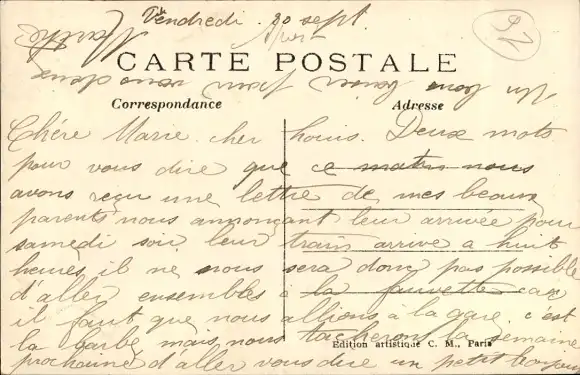 Vendredi 20 sept.
92
CARTE POSTALE
Un bon baiser pour vous deux
Correspondance
Adresse
Chére Marie cher Louis. Deux mots
pour vous dire que ce matin nous
avons reçu une lettre de mes beaux
parents nous annonçant leur arrivée pour
samedi soir leur train arrive a huit
heures, il ne nous sera donc pas possible
d'aller ensembles à la fauvette car
il faut que nous allions à la gare c'est
la barbe mais nous tacherons la semaine
Edition artistique C. M., Paris
prochaine d'aller vous dire un petit bonjour